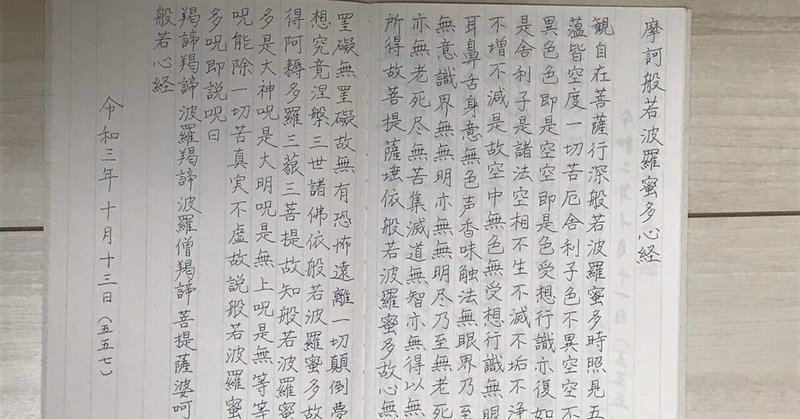 摩訶般若波羅蜜多心経
観自在菩薩行深般若波羅蜜多時照見五
蘊皆空度一切苦厄舎利子色不異空空不
異色色即是空空即是色受想行識亦復如
是舎利子是諸法空相不生不滅不垢不浄
不増不減是故空中無色無受想行識無眼
耳鼻舌身意無色声香味触法無眼界乃至
無意識界無無明亦無無明尽乃至無老死
亦無老死尽無苦集滅道無智亦無得以無
所得故菩提薩埵依般若波羅蜜多故心無
罣礙無罣礙故無有恐怖遠離一切顛倒夢
想究竟涅槃三世諸佛依般若波羅蜜多故
得阿耨多羅三藐三菩提故知般若波羅蜜
多是大神呪是大明呪是無上呪是無等等
呪能除一切苦真実不虚故説般若波羅蜜
多呪即説呪曰
羯諦羯諦波羅羯諦波羅僧羯諦菩提薩婆呵
般若心経
令和三年十月十三日(五五七)